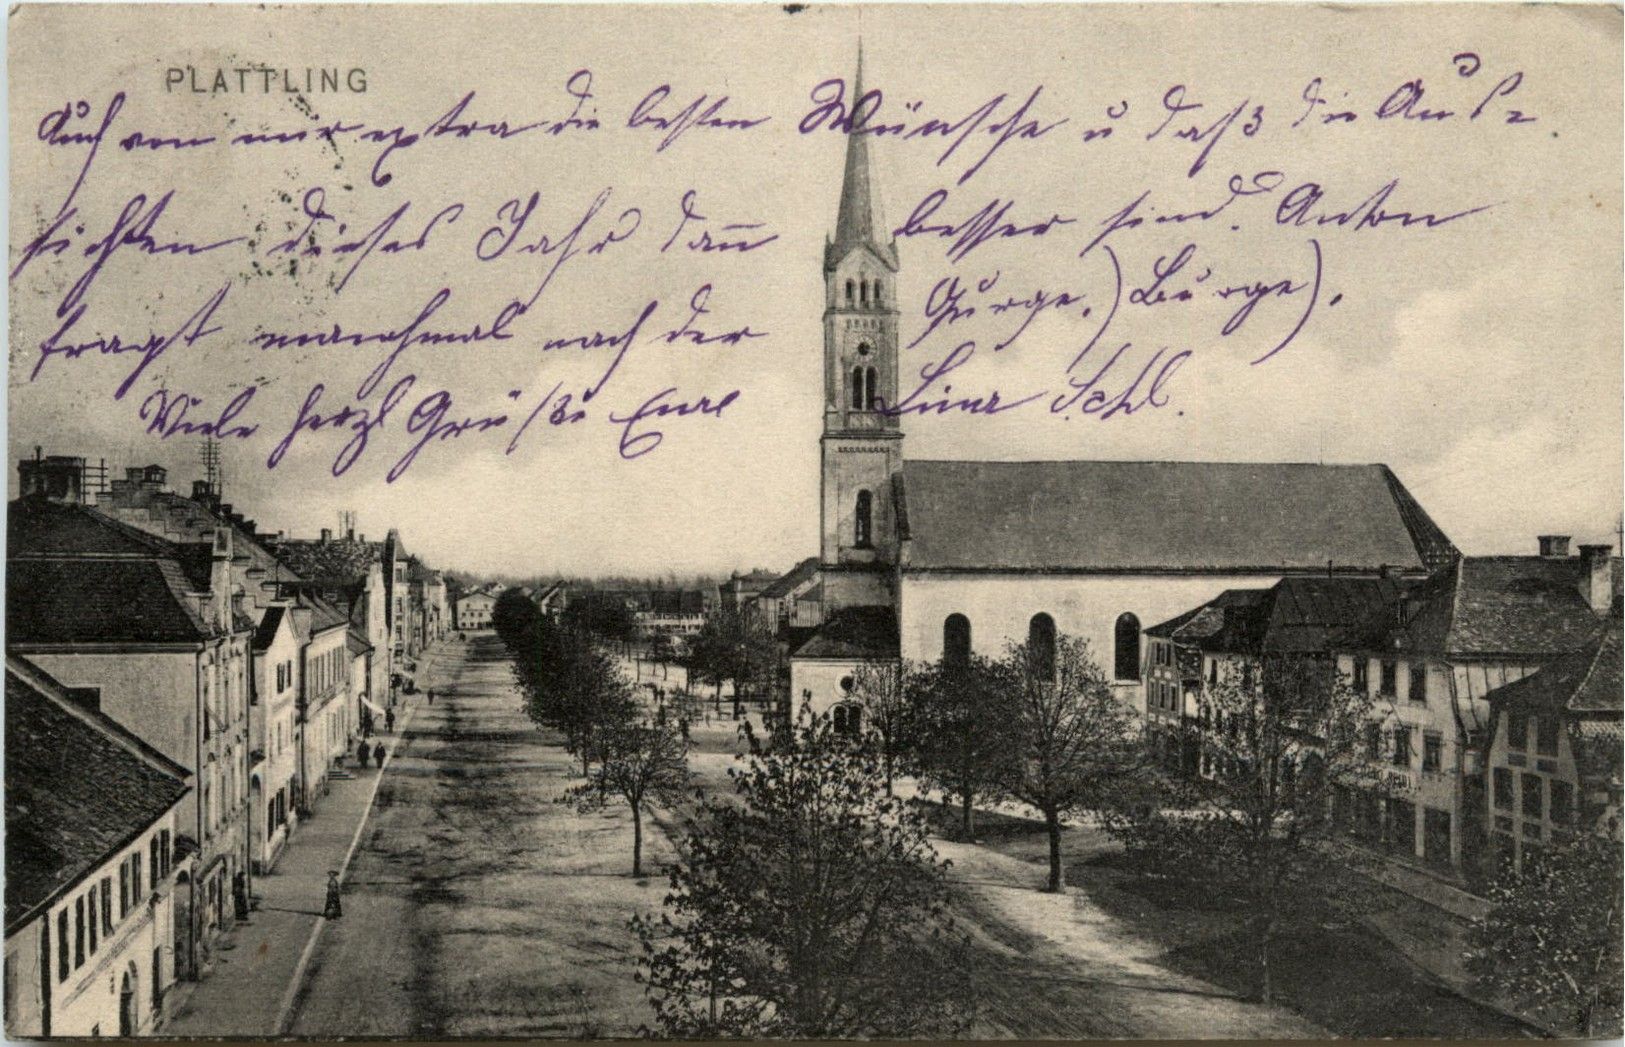 PLATTLING
Auch von mir extra die besten Wünsche u daß die Aus-
sichten dieses Jahr dann besser sind. Anton
fragt manchmal nach der Gurge.) Burge).
Viele herzl Grüße Eure Lina Schl.